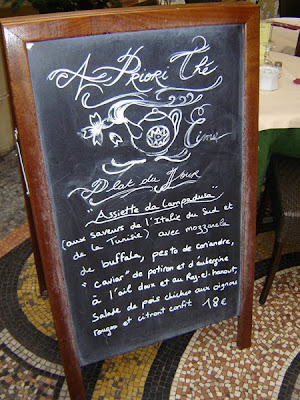 A Priori Thé
Plat du Jour
"Assiette da Lampadusa"
(aux saveurs de l'Italie du Sud et
de la Tunisie) avec mozzarela
de buffala, pesto de coriandre,
"caviar" de potiron et d'aubergine
à l'ail doux et au Ras-el-hanout,
salade de pois chiches aux oignons
rouges et citront confit 18€